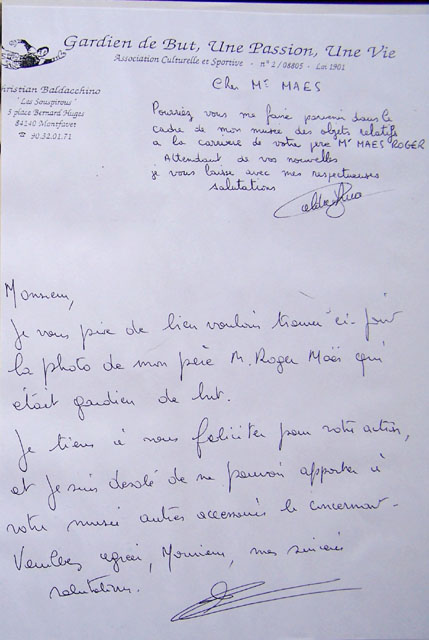 Gardien de But, Une Passion, Une Vie
Association Culturelle et Sportive - n° 2 / 08805 - Loi 1901
hristian Baldacchino
"Les Souspirous"
5 place Bernard Hugues
84140 Montfavet
☎ 90.32.01.71
Cher Mr MAES
Pourriez vous me faire parvenir dans le
cadre de mon musée des objets relatifs
a la carriere de votre père Mr MAES ROGER
Attendant de vos nouvelles
je vous laisse avec mes respectueuses
salutations
Monsieur,
Je vous prie de bien vouloir trouver ci-joint
la photo de mon père M. Roger Maës qui
était gardien de but.
Je tiens à vous feliciter pour votre action,
et je suis desolé de ne pouvoir apporter à
votre musée autres accessoires le concernant-
Veuillez agréer, Monsieur, mes sincères
salutations.